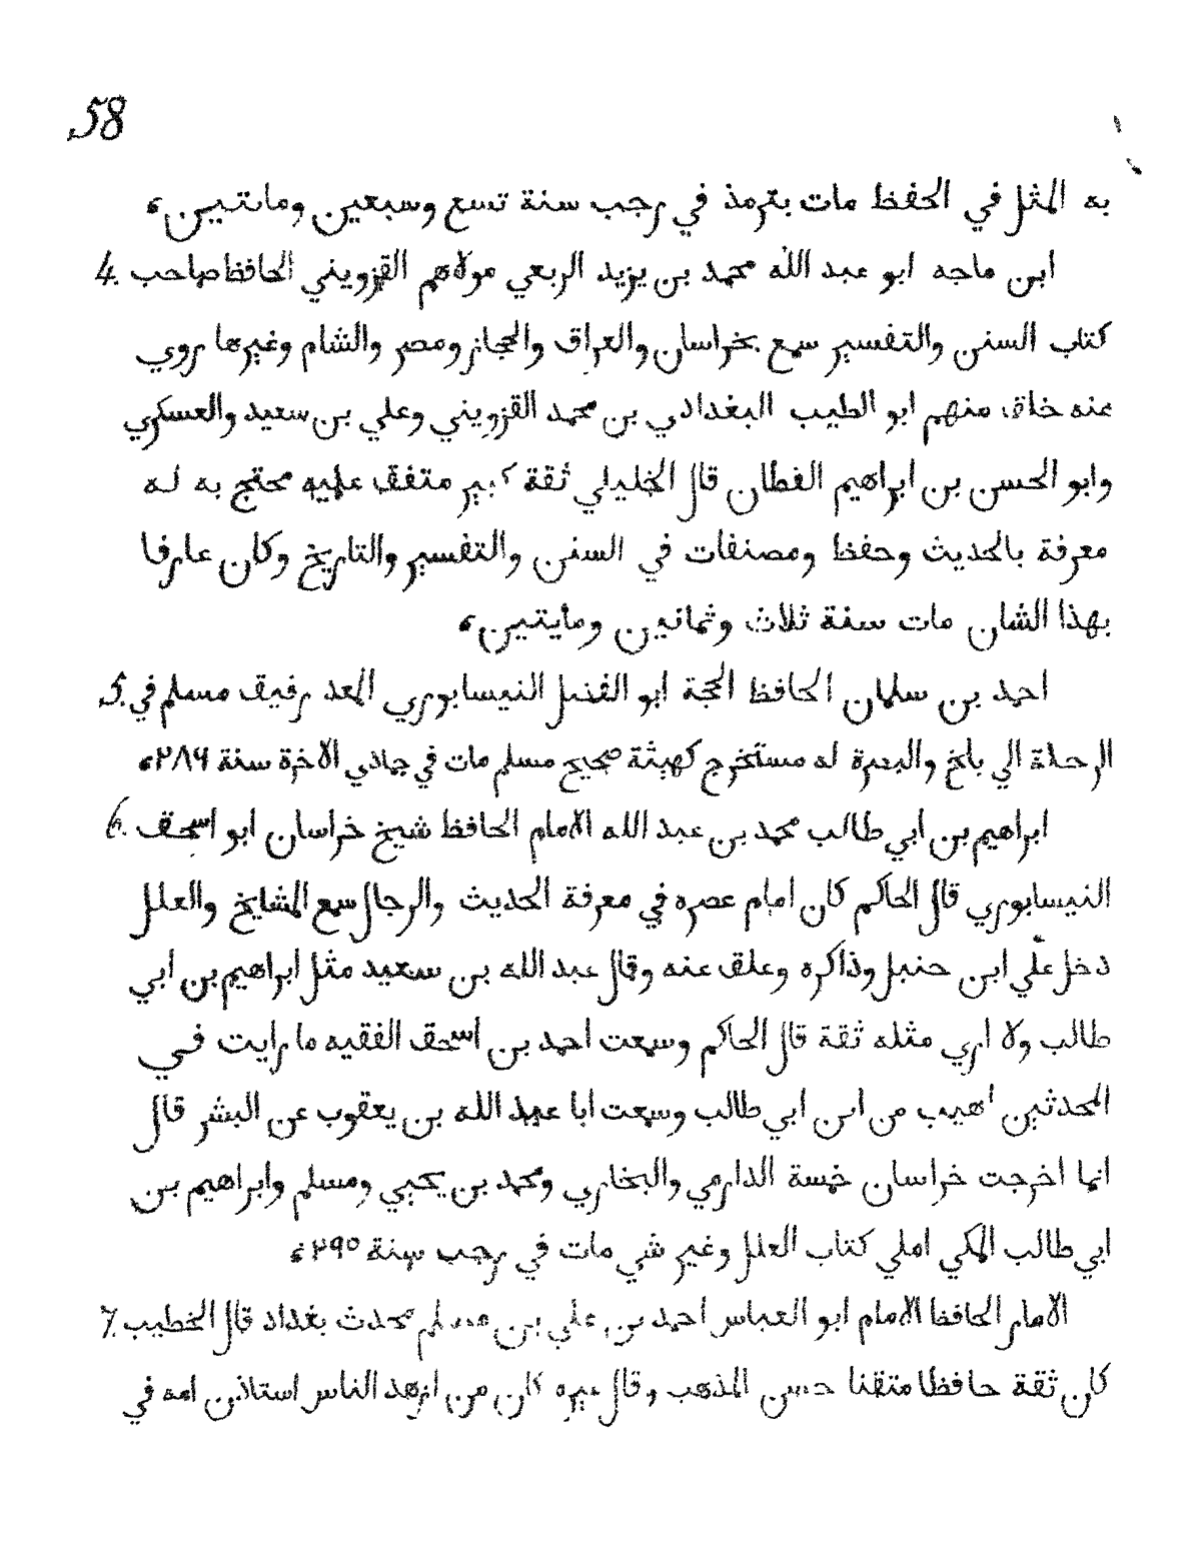 58
به المثل في الحفظ مات بترمذ في رجب سنة تسع وسبعين ومائتين،
4. ابن ماجه ابو عبد الله محمد بن يزيد الربعي مولاهم القزويني الحافظ صاحب
كتاب السنن والتفسير سمع بخراسان والعراق والحجاز ومصر والشام وغيرها روي
عنه خلق منهم ابو الطيب البغدادي بن محمد القزويني وعلي بن سعيد والعسكري
وابو الحسن بن ابراهيم القطان قال الخليلي ثقة كبير متفق عليه محتج به له
معرفة بالحديث وحفظ ومصنفات في السنن والتفسير والتاريخ وكان عارفا
بهذا الشان مات سنة ثلاث وثمانين ومأيتين،
5. احمد بن سلمان الحافظ الحجة ابو الفضل النيسابوري المعد رفيق مسلم في
الرحلة الي بلخ والبصرة له مستخرج كهيئة صحيح مسلم مات في جمادي الاخرة سنة ٢٨٦،
6. ابراهيم بن ابي طالب محمد بن عبد الله الامام الحافظ شيخ خراسان ابو اسحق
النيسابوري قال الحاكم كان امام عصره في معرفة الحديث والرجال سمع المشايخ والعلل
دخل علّي ابن حنبل وذاكره وعلق عنه وقال عبد الله بن سعيد مثل ابراهيم بن ابي
طالب ولا اري مثله ثقة قال الحاكم وسمعت احمد بن اسحق الفقيه ما رايت في
المحدثين اهيب من ابن ابي طالب وسمعت ابا عبد الله بن يعقوب عن البشر قال
انما اخرجت خراسان خمسة الدارمي والبخاري ومحمد بن يحيي ومسلم وابراهيم بن
ابي طالب المكي املي كتاب العلل وغير شي مات في رجب سنة ٢٩٥،
7. الامام الحافظ الامام ابو العباس احمد بن علي بن مسلم محدث بغداد قال الخطيب
كان ثقة حافظا متقنا حسن المذهب وقال غيره كان من ازهد الناس استاذن امه في